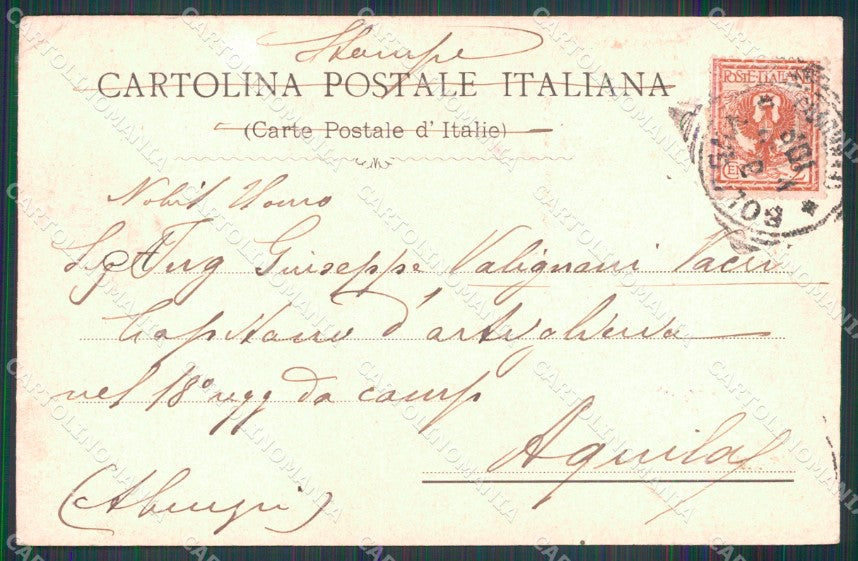 Stampe
CARTOLINA POSTALE ITALIANA
(Carte Postale d'Italie)
POSTE ITALIANE
BOL
Nobil Uomo
Sig Ing Giuseppe Valignani
Capitano d'artiglieria
nel 18° regg da camp
Aquila
(Abruzzi)
CARTOLINOMANIA